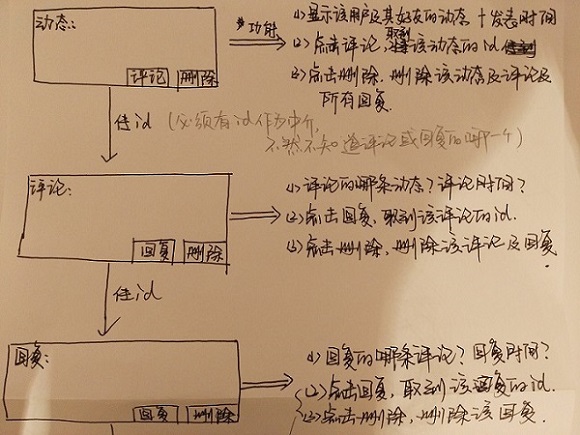 动态:
评论 删除
功能
(1)显示该用户及其好友的动态+发表时间
(2)点击评论,取到该动态的id
(3)点击删除,删除该动态及评论及
所有回复.
传id (必须有id作为中介,
不然不知道评论或回复的哪一个)
评论:
回复 删除
(1)评论的哪条动态?评论时间?
(2)点击回复,取到该评论的id.
(3)点击删除,删除该评论及回复
传id
回复:
回复 删除
(1)回复的哪条评论?回复时间?
(2)点击回复,取到该回复的id.
(3)点击删除,删除该回复.